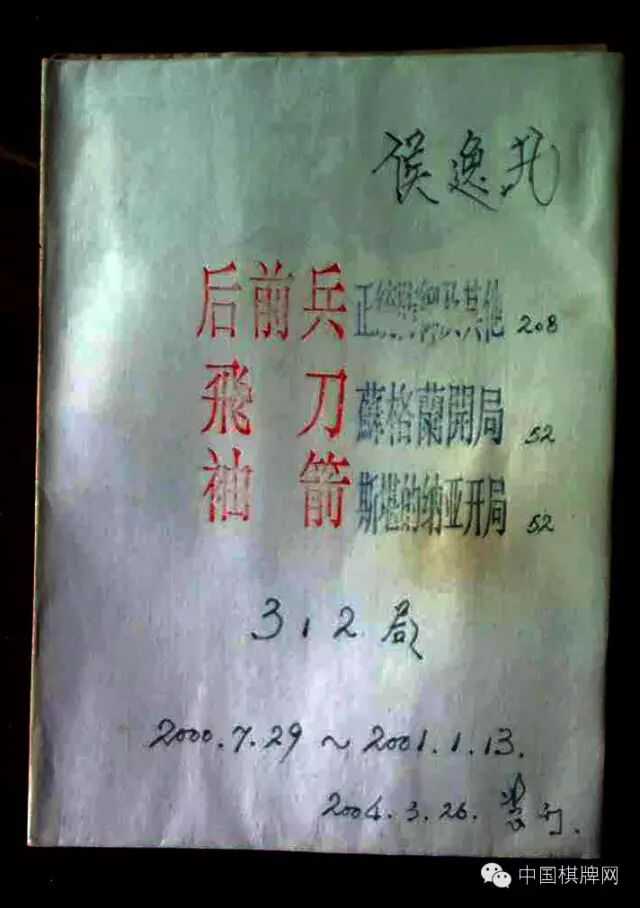 侯逸凡
后前兵 正 及其他 208
飛刀 蘇格蘭開局 52
袖箭 斯堪的纳亚开局 52
312局
2000.7.29～2001.1.13.
2004.3.26. 装订.
中国棋牌网